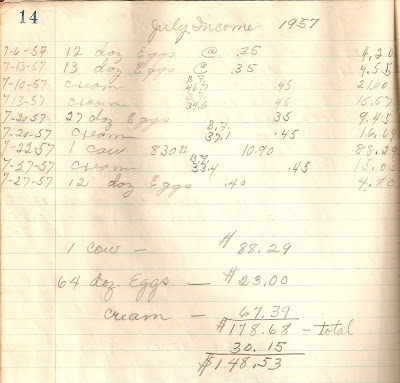 14
July Income 1957
7-6-57 12 doz Eggs @ .35 4.20
7-13-57 13 doz Eggs @ .35 4.55
7-10-57 cream B.F. 46.7 .45 21.00
7-13-57 cream 34.6 .45 15.57
7-20-57 27 doz Eggs 35 9.45
7-20-57 cream B.F. 37.1 .45 16.69
7-22-57 1 cow 830# 10.90 88.29
7-27-57 cream B.F. 33.4 .45 15.03
7-27-57 12 doz Eggs .40 4.80
1 cow — $ 88.29
64 doz. Eggs — $23.00
cream — 67.39
$178.68 - total
30.15
$148.53